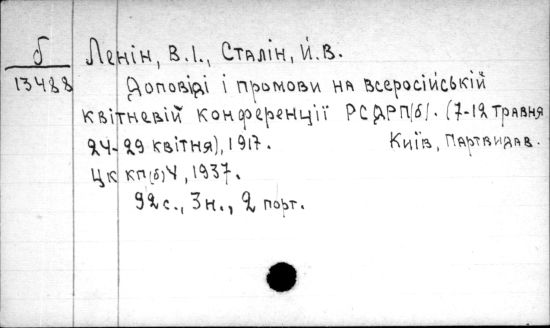 б Ленін, В.І., Сталін, Й.В.
13488 Доповіді і промови на всеросійській
квітневій конференції РСДРП(б). (7-12 травня
24-29 квітня), 1917. Київ, Партвидав.
ЦК КП(б)У, 1937.
92 с., 3 н., 2 порт.